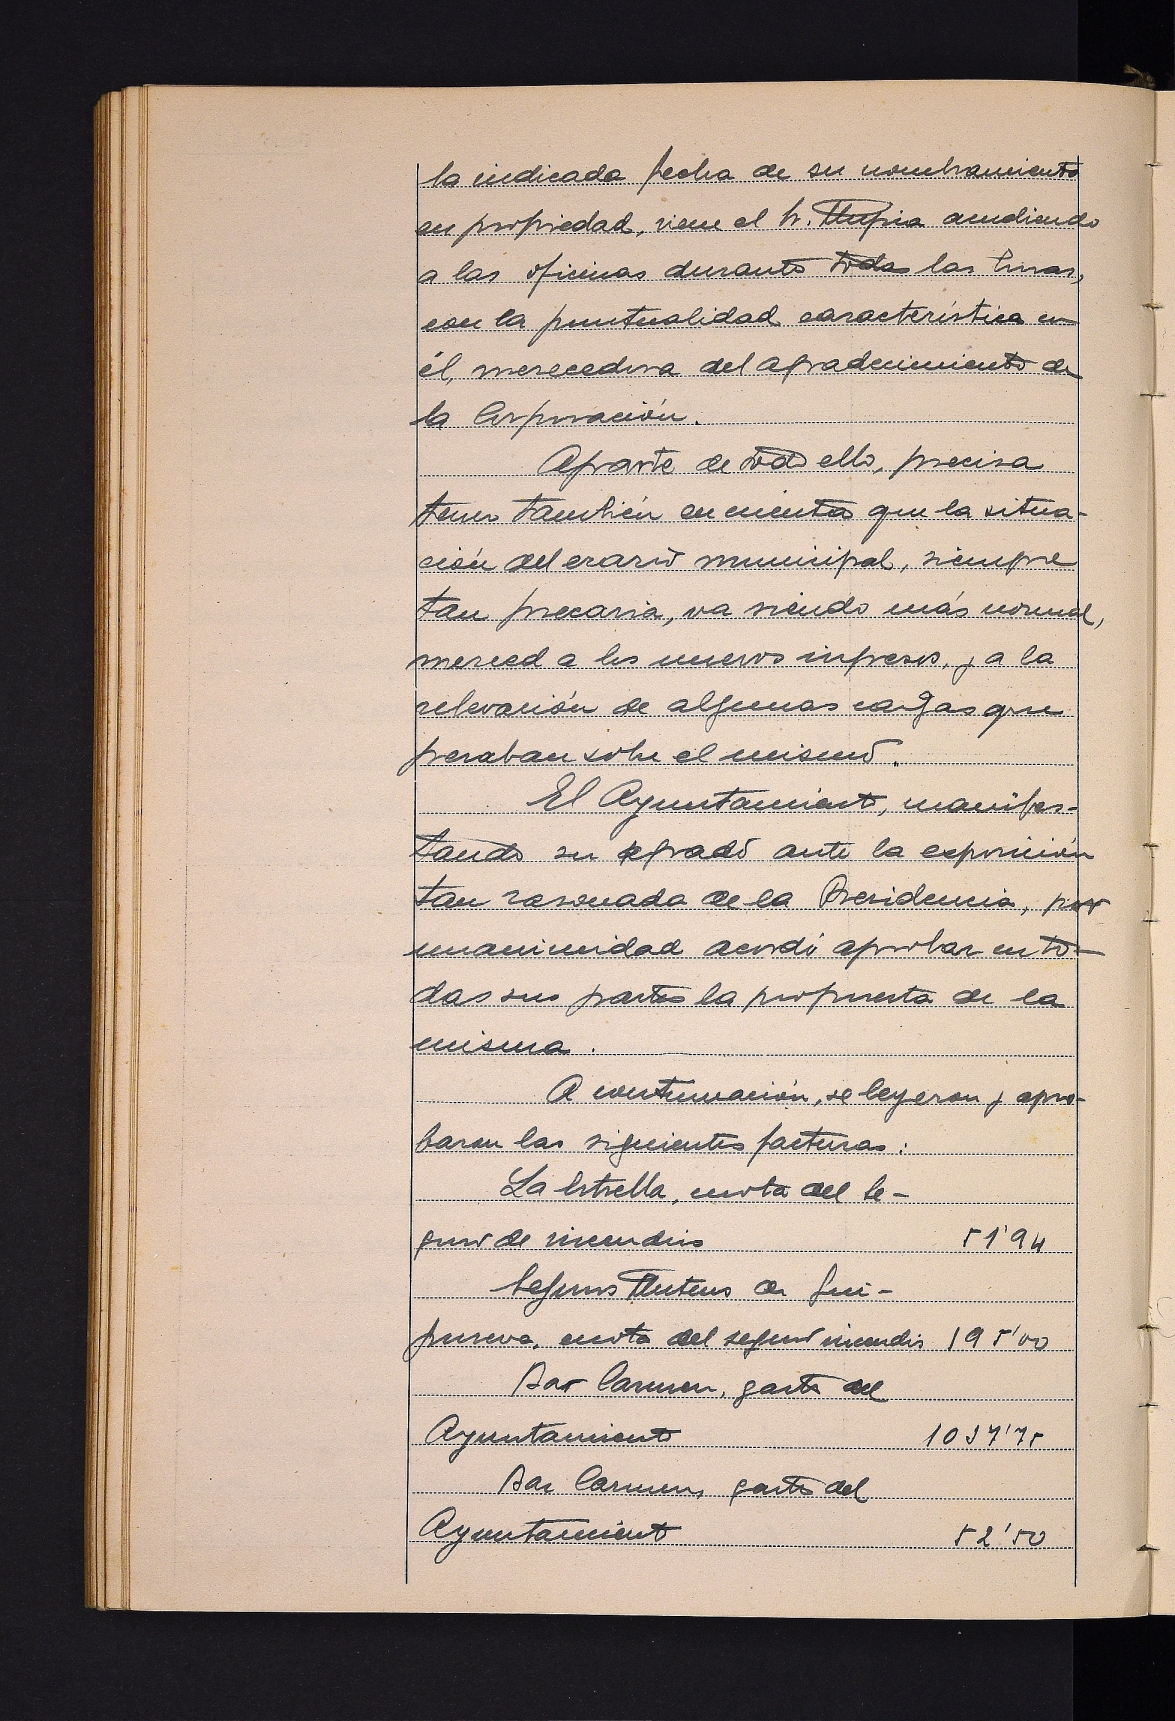 la indicada fecha de su nombramiento
en propiedad, viene el Sr. Mugica acudiendo
a las oficinas durante todas las horas,
con la puntualidad característica en
él, merecedora del agradecimiento de
la Corporación.
Aparte de todo ello, precisa
tener también en cuenta que la situa-
ción del erario municipal, siempre
tan precaria, va siendo más normal,
merced a los nuevos ingresos, y a la
relevación de algunas cargas que
pesaban sobre el mismo.
El Ayuntamiento, manifes-
tando su agrado ante la exposición
tan razonada de la Presidencia, por
unanimidad acordó aprobar en to-
das sus partes la propuesta de la
misma.
A continuación, se leyeron y apro-
baron las siguientes facturas:
La Estrella, cuota del Se-
guro de incendios 51'94
Seguros Mutuos de Gui-
púzcoa, cuota del seguro incendios 195'00
Bar Carmen, gasto del
Ayuntamiento 1037'75
Bar Carmen, gasto del
Ayuntamiento 52'50